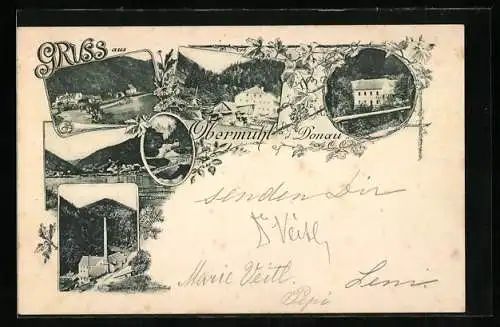 GRUSS aus
Obermühl a/ Donau
senden Dir
Dr Veitl,
Marie Veitl. Leni
Pepi